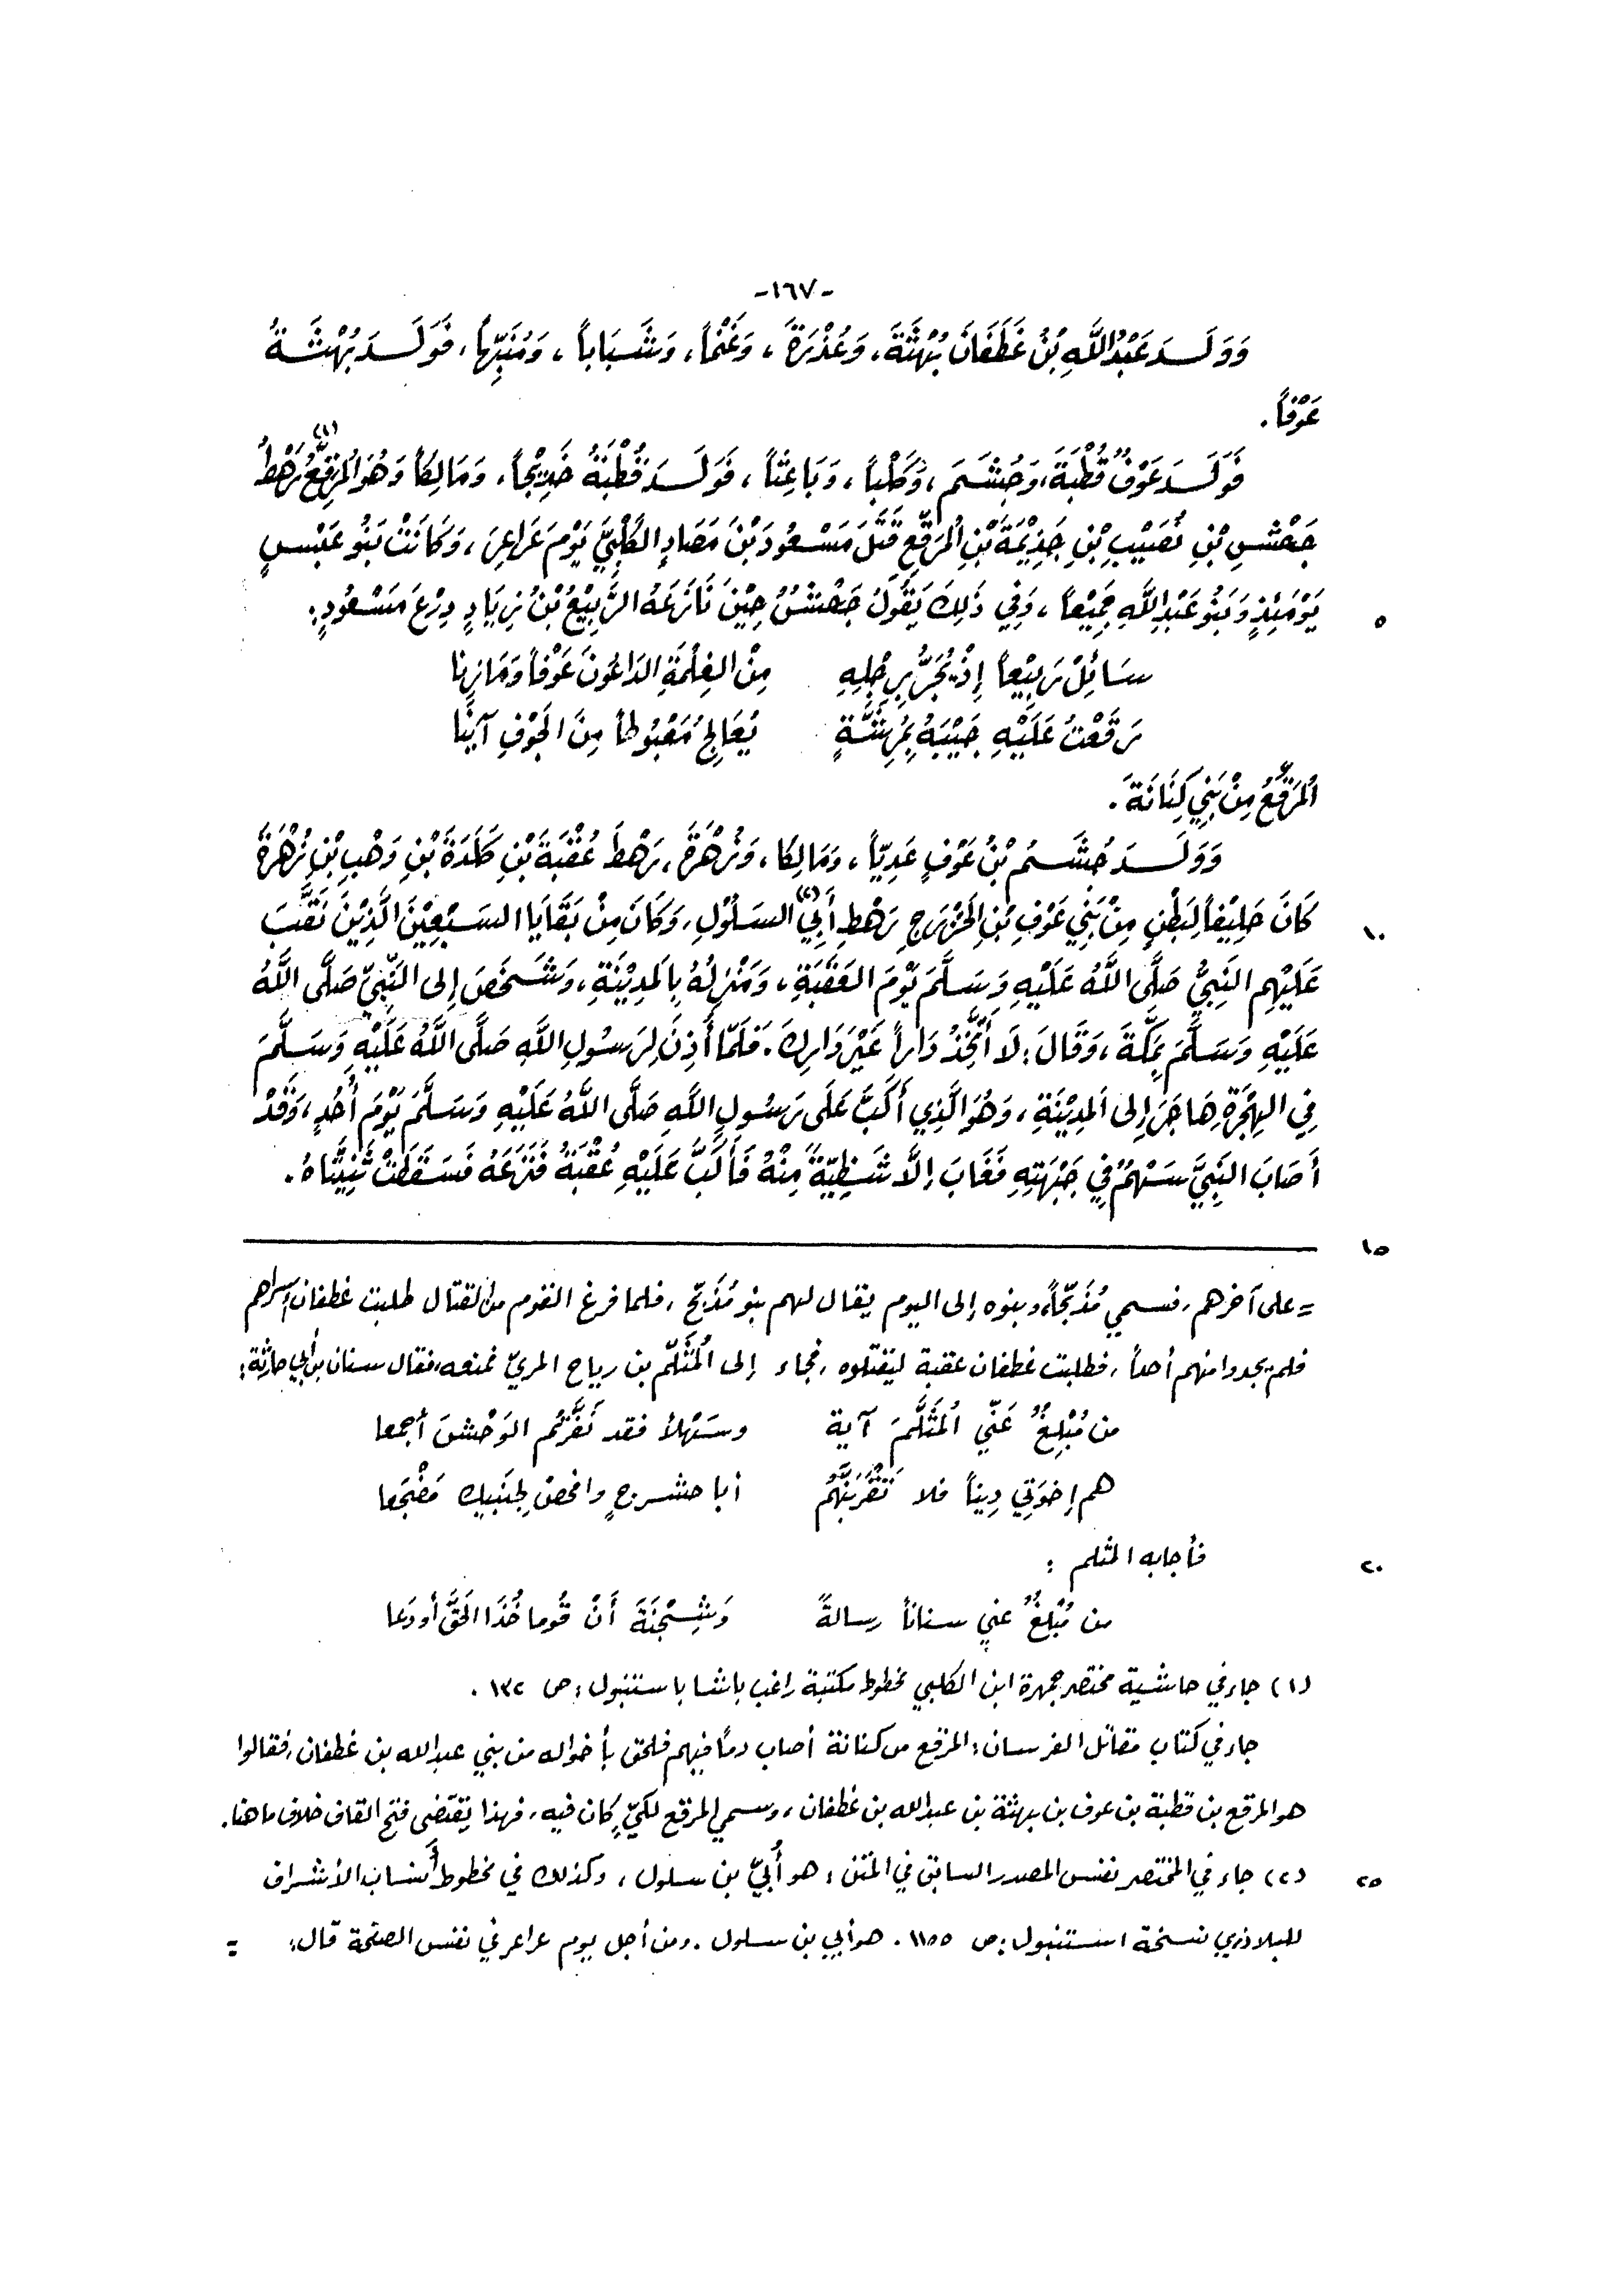 -١٦٧-
وَوَلَـدَ عَبْدُ اللَّهِ بْنُ غَطَفَانَ بُهْثَةَ، وَعُذْرَةَ، وَغَنْماً، وَشَـبَاباً، وَمُنَبِّهاً، فَوَلَـدَ بُهْثَـةُ
عَوْفاً.
فَوَلَـدَ عَوْفٌ قُطْبَةَ، وَجُشَـمَ، وَكَلْباً، وَبَاعِثاً، فَوَلَـدَ قُطْبَةُ خَدِيْجاً، وَمَالِكاً وَهُوَ الْمُرَقِّعُ (١) رَهْطُ
جَحْشِ بْنِ نُصَيْبِ بْنِ جَذِيْمَةَ بْنِ الْمُرَقِّعِ قَتَلَ مَسْـعُودَ بْنَ مَصَادٍ الكَلْبِيَّ يَوْمَ عَرَاعِرَ، وَكَانَتْ بَنُو عَبْسٍ
يَوْمَئِذٍ وَبَنُو عَبْدِ اللَّهِ جَمِيْعاً، وَفِي ذَلِكَ يَقُولُ جَحْشٌ حِيْنَ نَازَعَهُ الرَّبِيْعُ بْنُ زِيَادٍ دِرْعَ مَسْـعُودٍ: ٥
سَـائِلْ رَبِيْعاً إِذْ يُجَرُّ بِرِجْلِهِ مِنَ الغِلْمَةِ الدَاعُونَ عَوْفاً وَمَازِنا
رَقَعْتُ عَلَيْهِ جَيْبَهُ بِمُرِشَّـةٍ يُعَالِجُ مَعْبُوطاً مِنَ الجَوْفِ آيِنَا
الْمُرَقَّعُ مِنْ بَنِي كِنَانَةَ.
وَوَلَـدَ جُشَـمُ بْنُ عَوْفٍ عَدِيّاً، وَمَالِكا، وَزُهْرَةَ، رَهْطَ عُقْبَةَ بْنِ كَلَدَةَ بْنِ وَهْبِ بْنِ زُهْرَةَ
كَانَ حَلِيْفاً لِبَطْنٍ مِنْ بَنِي عَوْفِ بْنِ الخَزْرَجِ رَهْطِ أَبِي (٢) السَلُوْلِ، وَكَانَ مِنْ بَقَايَا السَـبْعِيْنَ الَّذِيْنَ نَقَّبَ ١٠
عَلَيْهِمِ النَبِيُّ صَلَّى اللَّهُ عَلَيْهِ وَسَـلَّمَ يَوْمَ العَقَبَةِ، وَمَنْزِلُهُ بِالمَدِيْنَةِ، وَشَـخَصَ إِلى النَّبِيِّ صَلَّى اللَّهُ
عَلَيْهِ وَسَـلَّمَ بِمَكَّةَ، وَقَالَ: لَا أَتَّخِذُ دَاراً غَيْرَ دَارِكَ. فَلَمَّا أُذِنَ لِرَسُولِ اللَّهِ صَلَّى اللَّهُ عَلَيْهِ وَسَـلَّمَ
فِي الهِجْرَةِ هَاجَرَ إِلى المَدِيْنَةِ، وَهُوَ الَّذِي أَكَبَّ عَلَى رَسُولِ اللَّهِ صَلَّى اللَّهُ عَلَيْهِ وَسَـلَّمَ يَوْمَ أُحُدٍ، وَقَدْ
أَصَابَ النَبِيَّ سَـهْمٌ فِي جَبْهَتِهِ فَغَابَ إِلَّا شَـظِيَّةً مِنْهُ فَأَكَبَّ عَلَيْهِ عُقْبَةُ فَنَزَعَهُ فَسَـقَطَتْ ثَنِيَّتَاهُ.
١٥
= على آخرهم، فسمي مُذَبِّحاً، وبنوه إلى اليوم يقال لهم بنو مُذَبِّح، فلما فرغ القوم من القتال طلبت غطفان أسراهم
فلم يجدوا منهم أحداً، فطلبت غطفان عقبة ليقتلوه، فجاء إلى المُثَلَّم بن رياح المريّ فمنعه، فقال سنان بن أبي حارثة:
من مُبْلِغٌ عَنِّي المُثَلَّمَ آية وسَـهْلاً فقد نَفَّرْتُم الوَحْشَ أجمعا
هم إخوَتِي دِيناً فلا تَقْرَبَنَّهُم أبا حشـرجٍ وافحصْ لجنبيك مَضْجَعا
فأجابه المثلم : ٢٠
من مُبْلِغٌ عني سـناناً رسالةً وَشِـجْنَةَ أَنْ قُوما خُذَا الحَقَّ أودَعا
(١) جاء في حاشية مختصر جمهرة ابن الكلبي مخطوط مكتبة راغب باشا باستنبول: ص ١٣٢ .
جاء في كتاب مقاتل الفرسان: المرقع من كنانة أصاب دماً فيهم فلحق بأخواله من بني عبد الله بن غطفان، فقالوا
هو المرقع بن قطبة بن عوف بن بهثة بن عبد الله بن غطفان، وسمي المرقع لكيٍّ كان فيه، فهذا يقتضى فتح القاف خلاف ما هنا.
(٢) جاء في المختصر نفس المصدر السابق في المتن: هو أُبيّ بن سلول، وكذلك في مخطوط أنساب الأشراف ٢٥
للبلاذري نسخة استنبول: ص ١١٥٥ . هو أبي بن سلول. ومن أجل يوم عراعر في نفس الصفحة قال: =